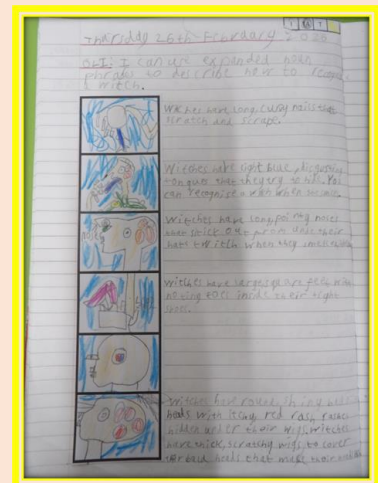 I A T
Thursday 26th February 2026
OLI: I can use expanded noun
phrases to describe how to recognise
a witch.
Witches have long, curvy nails that
scratch and scrape.
Witches have bright blue, disgusting
tongues that they try to hide. You
can recognise a witch when
Witches have long, pointy noses
that stick out from under their
hats twitch when they smell
Witches have large square feet with
no toes inside their tight
shoes.
Witches have round shiny bald
heads with itchy red rash
hidden under their wigs. Witches
have thick, scratchy wigs to cover
bald heads that make their